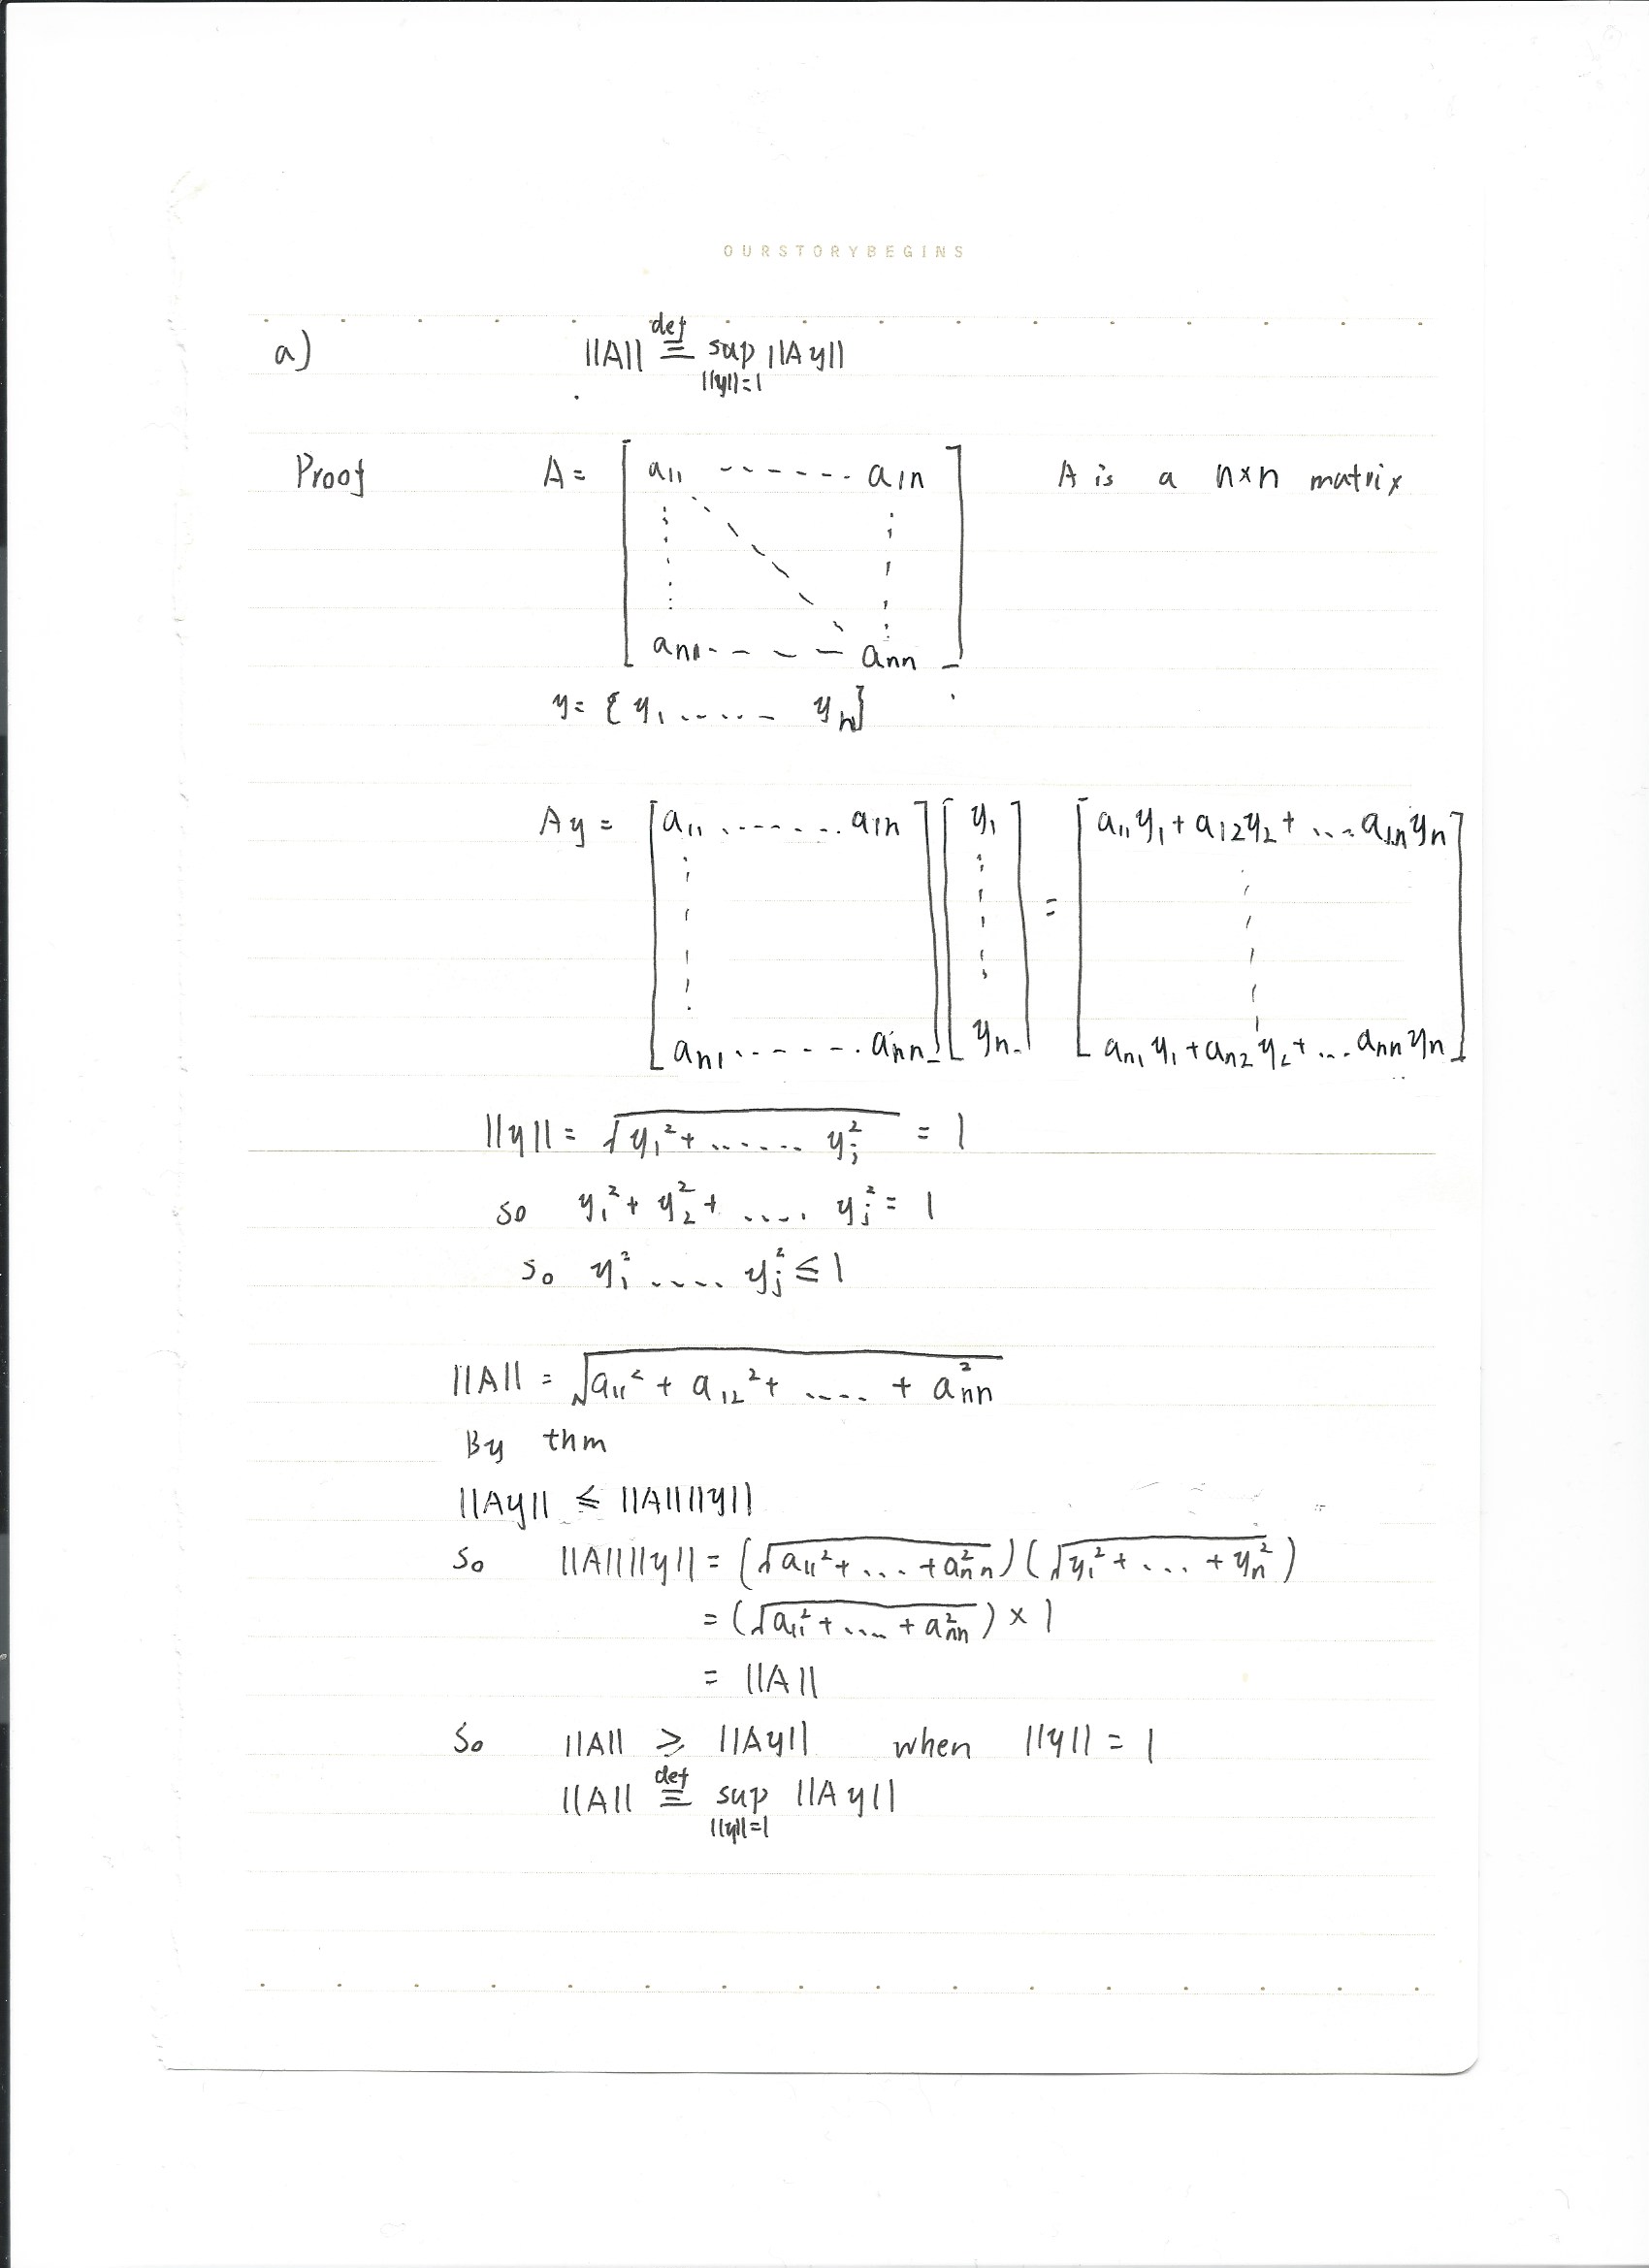 OURSTORYBEGINS
a) ||A|| ≝ sup ||Ay||
||y||=1
Proof A = [ a₁₁ ------ a₁n ] A is a n×n matrix
[ an₁ - - - - ann ]
y = { y₁ ...... yn }
Ay = [ a₁₁ ....... a₁n ] [ y₁ ] = [ a₁₁y₁ + a₁₂y₂ + .... a₁nyn ]
[ an₁ ....... ann ] [ yn ] [ an₁y₁ + an₂y₂ + ... annyn ]
||y|| = √(y₁² + ...... yⱼ²) = 1
so y₁² + y₂² + .... yⱼ² = 1
so y₁² .... yⱼ² ≤ 1
||A|| = √(a₁₁² + a₁₂² + ..... + ann²)
By thm
||Ay|| ≤ ||A|| ||y||
so ||A|| ||y|| = (√(a₁₁² + ... + ann²)) (√(y₁² + ... + yn²))
= (√(a₁₁² + .... + ann²)) × 1
= ||A||
So ||A|| ≥ ||Ay|| when ||y|| = 1
||A|| ≝ sup ||Ay||
||y||=1